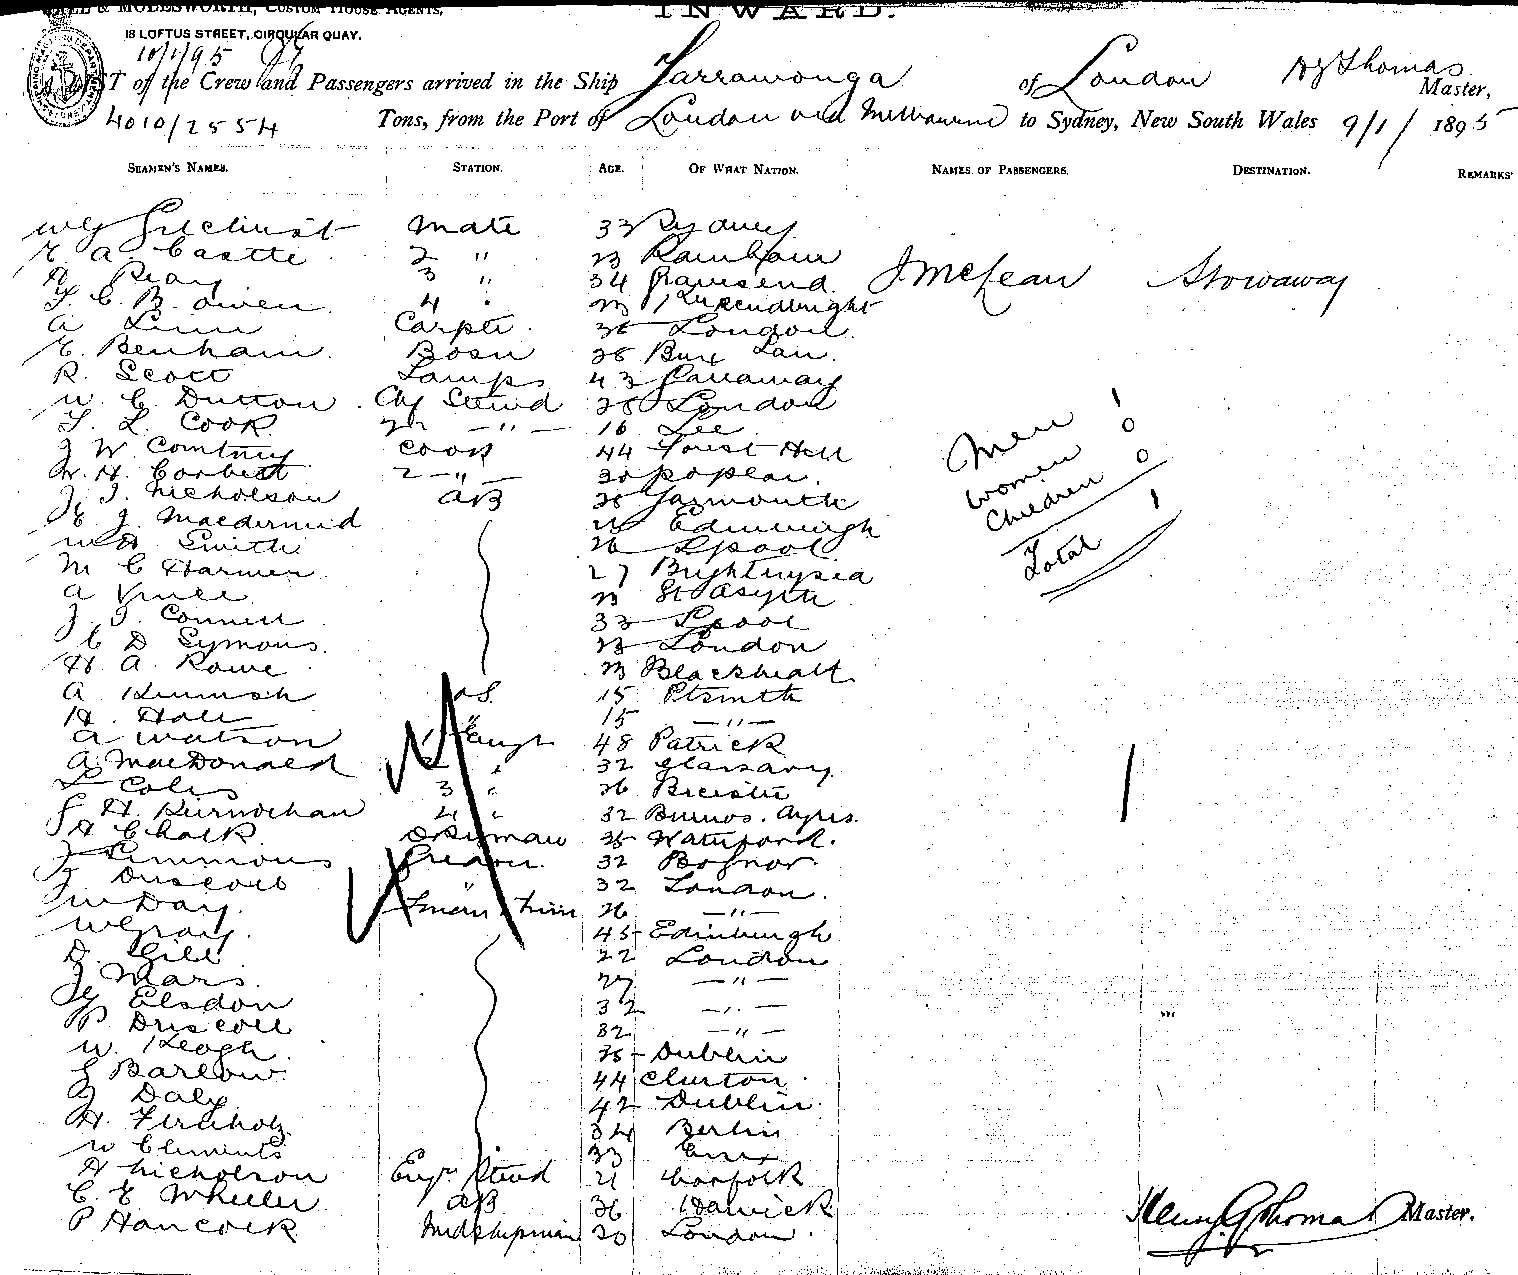 & MOLESWORTH, CUSTOM HOUSE AGENTS,
INWARD.
18 LOFTUS STREET, CIRCULAR QUAY.
10/1/95
LIST of the Crew and Passengers arrived in the Ship Yarrawonga of London Hy Thomas Master,
4010/2554 Tons, from the Port of London and Melbourne to Sydney, New South Wales 9/1/1895
SEAMEN'S NAMES. STATION. AGE. OF WHAT NATION. NAMES OF PASSENGERS. DESTINATION. REMARKS
W G Gilchrist Mate 33 Sydney
A. Castle 2 " 23 Rainham
Peary 3 " 34 Gravesend J McLean Stowaway
C. B. Owen 4 " 23
A Linn Carptr. London.
E. Benham Bosn
R. Scott Lamps 43
W. C. Dutton Chf Stewd 28 London
L. Cook 2n — " — 16 Lee
J W Comtney Cook 44 Forest Hill
W. H. Corbett 2 — " — 30 Poplar.
J. J. Nicholson AB 28 Yarmouth
J. Macdermid Edinburgh
W H Smith 26 Lpool
M C Harmer 27 Brightlingsea
A Vince 23 St Osyth
J. J. Connell 33 Lpool
C D Symons. 23 London
H. A. Rowe 23 Blackheath
A 15 Ptsmth
H. Hall " 15 — " —
A Watson 1 Engr 48 Patrick
A MacDonald 2 " 32
Coles 3 " 26 Bicester
H. Kernochan 4 " 32 Buenos. Ayres.
H Chalk Dkyman Waterford.
J Simmons Greaser. 32 Bognor.
J Driscoll " 32 London.
W Day. Fman & Trim 26 — " —
W Gray. 45 Edinburgh
D. Gill 22 London
J Mars. 27 — " —
Elsdon 32 — " —
P. Driscoll 32 — " —
W. Keogh. Dublin
Barlow. 44 Clurton.
J Daly 42 Dublin.
H. 34 Berlin
W Clements 33
H Nicholson Engrs Stewd 21 Norfolk
C. E Wheeler AB 36 Harwick
P Hancock Midshipman 20 London.
Men 1
Women 0
Children 0
Total 1
Henry G Thomas Master.